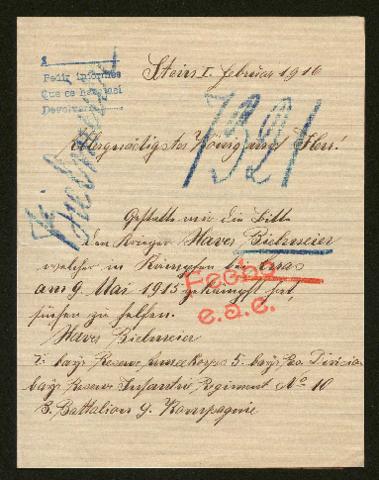 Pedir informes
Que se haga así
Devolver
Stein 1. Februar 1916
7321
Allergnädigster König und Herr!
Gestatte mir die Bitte
den Krieger Xaver Bielmeier
welcher in Kämpfen Arras
am 9. Mai 1915 gekämpft hat,
suchen zu helfen.
Fecha
e.a.c.
Xaver Bielmeier
I. bayr Reserve Armeekorps 5. bayr Res. Division
bayr Reserve Infantrie Regiment No 10
3. Battalion 9. Kompagnie